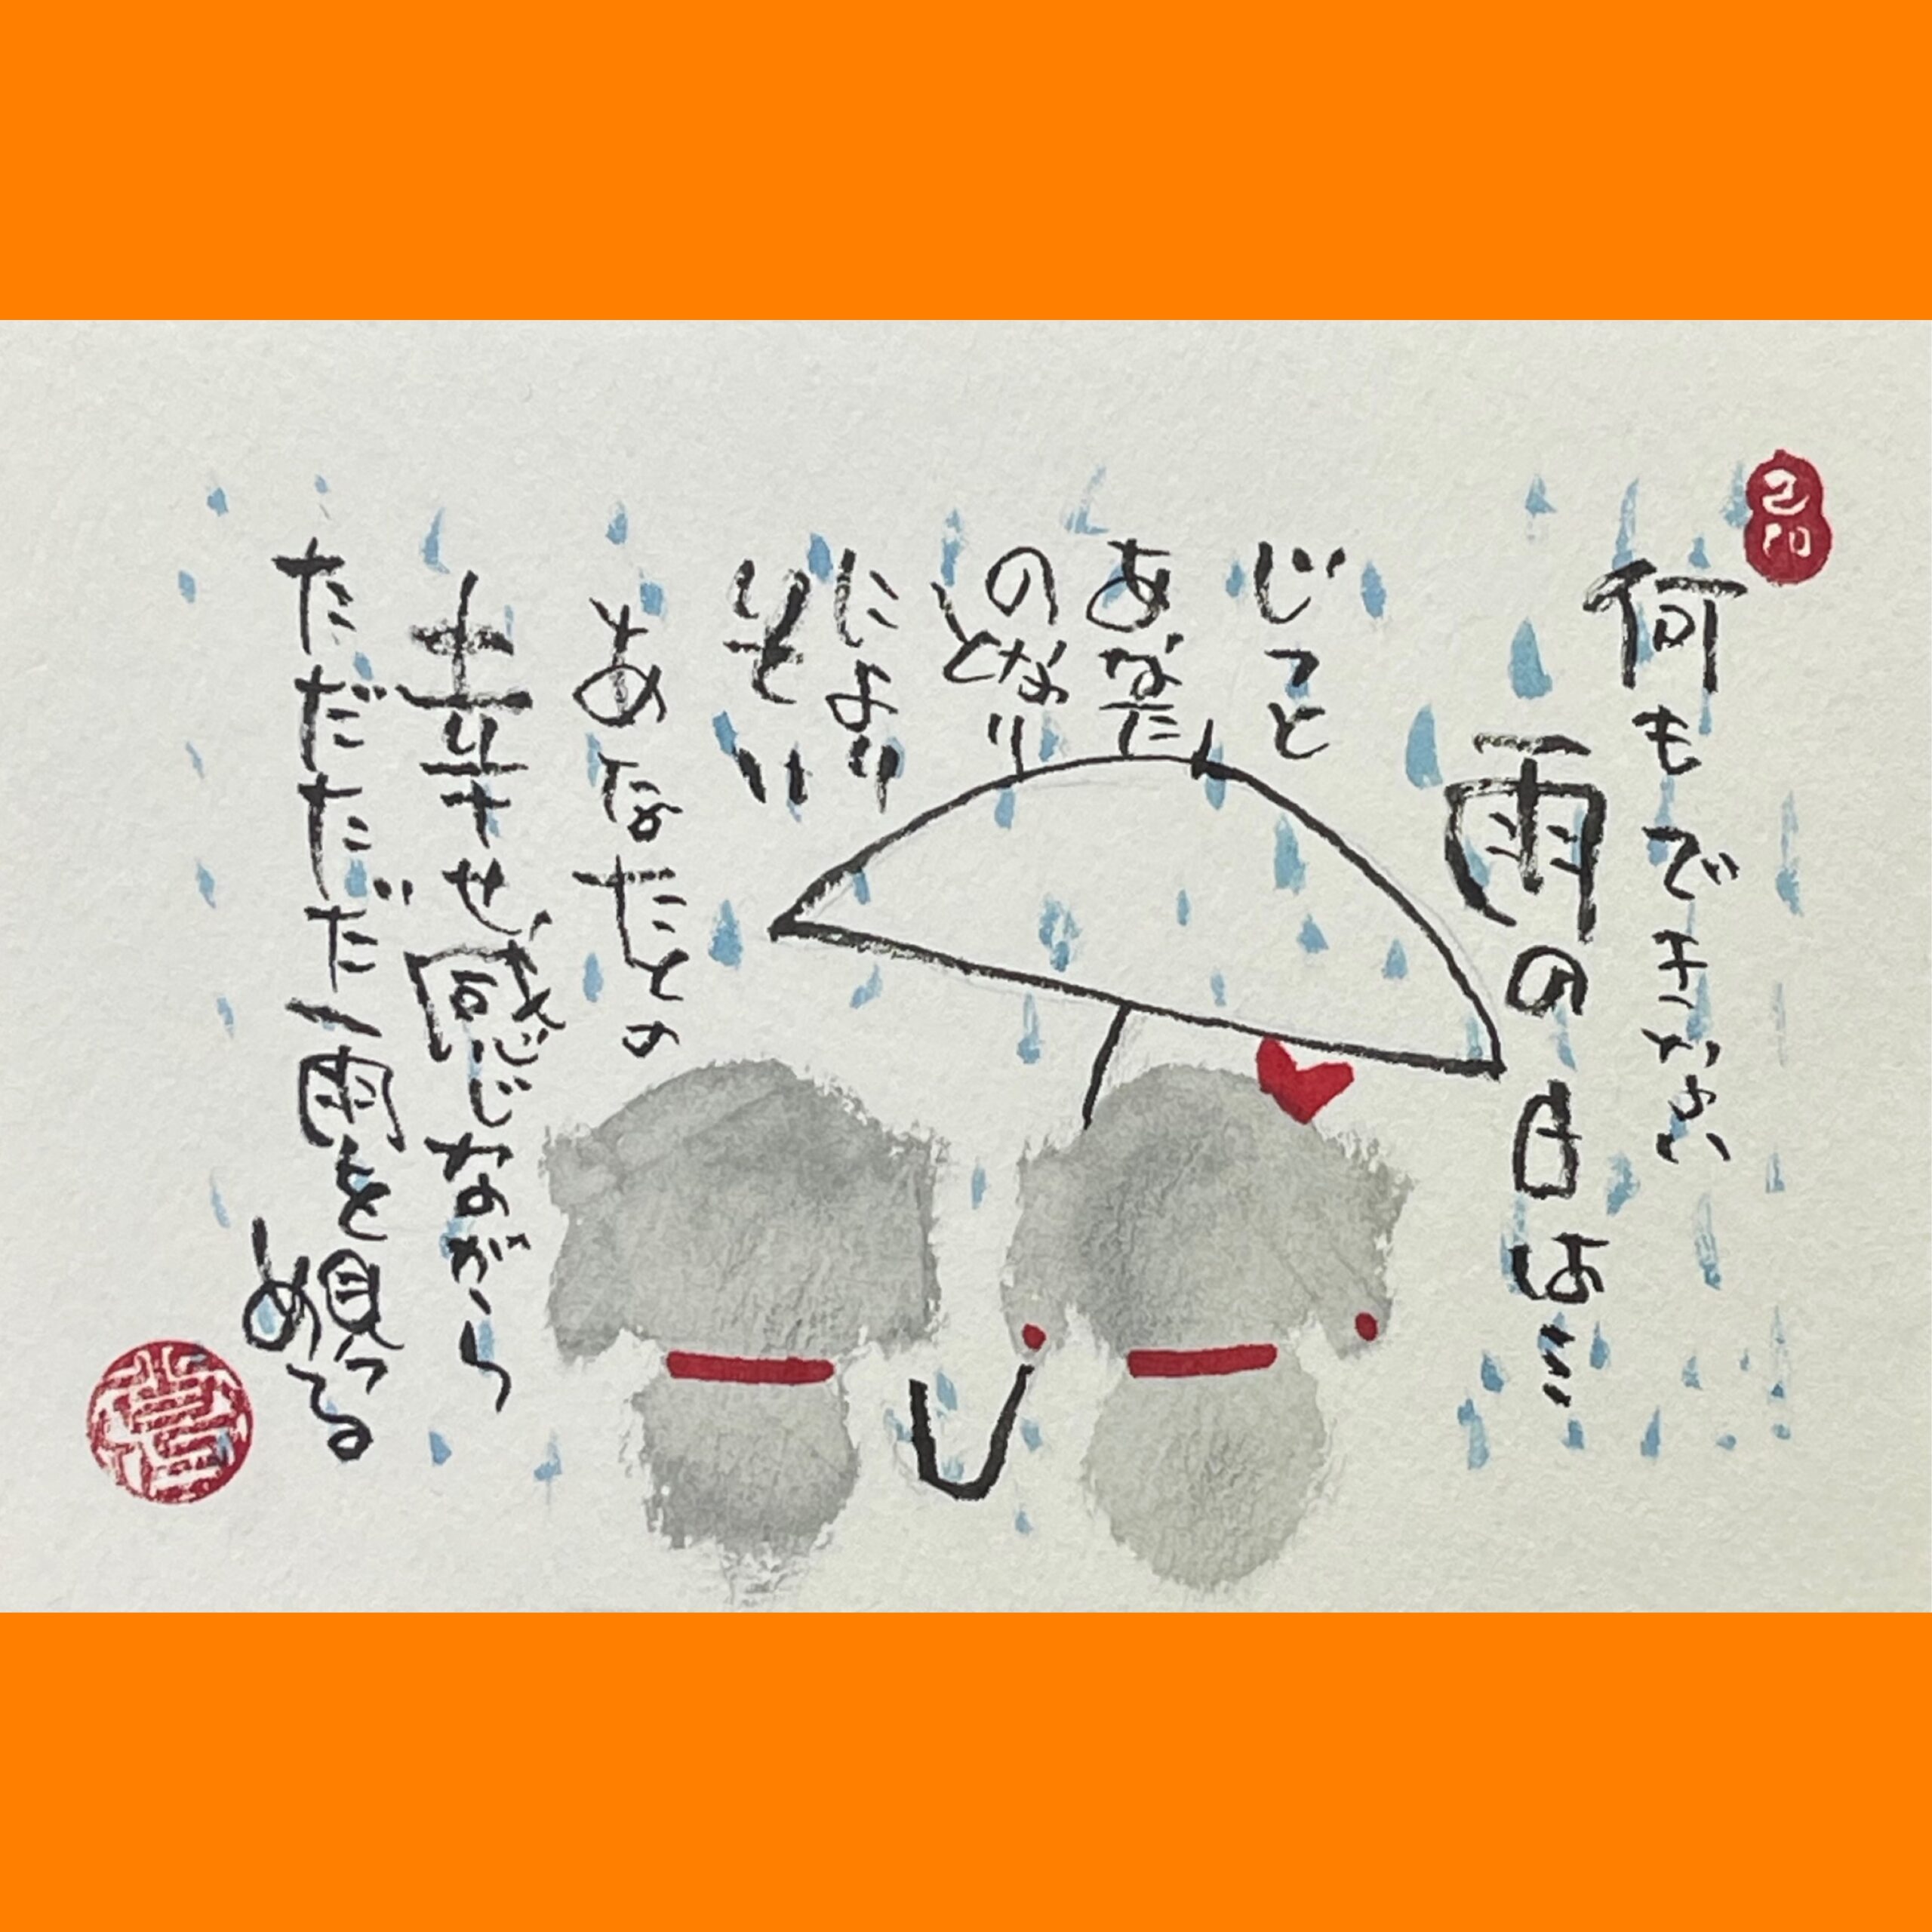 何もできない
雨の日は…
じっと
あなた
のとなり
により
そい
あなたとの
幸せ感じながら
ただただ雨を見つめてる